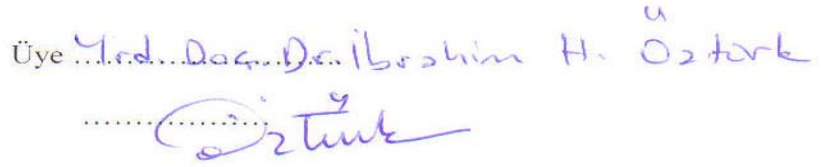 Üye Yrd. Doç. Dr. İbrahim H. Öztürk
Öztürk